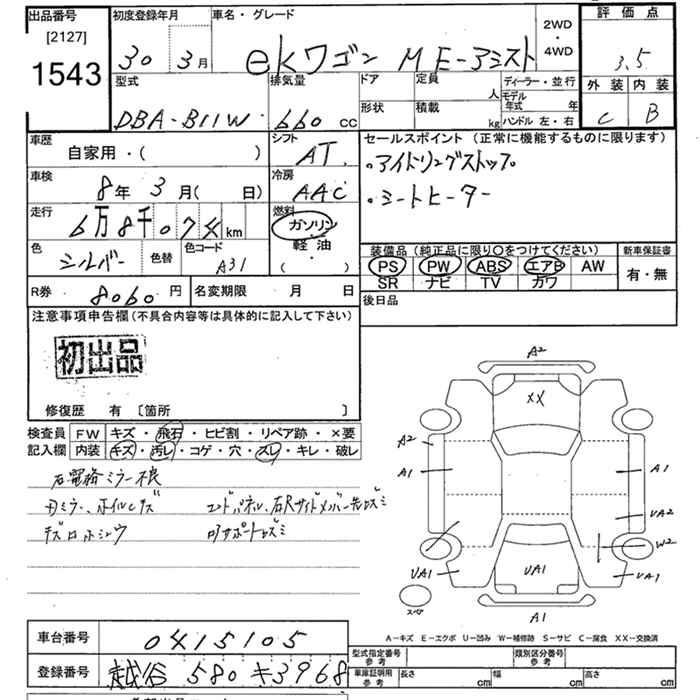 出品番号 初度登録年月 車名・グレード 2WD・4WD 評価点
[2127]
1543 30年 3月 eKワゴン ME-アミスト 3.5
外装 内装
C B
型式 排気量 ドア 定員 人 ディーラー・並行
DBA-B11W 660cc 形状 積載 kg モデル年式 年 ハンドル 左・右
車歴 自家用・( ) シフト AT
セールスポイント(正常に機能するものに限ります)
・アイドリングストップ
・シートヒーター
車検 8年 3月( 日) 冷房 AAC
走行 6万8千07 km 燃料 ガソリン 軽油 ( )
色 シルバー 色替 色コード A31
装備品(純正品に限り○をつけてください) 新車保証書
PS PW ABS エアB AW 有・無
SR ナビ TV カワ
R券 8060円 名変期限 月 日
後日品
注意事項申告欄(不具合内容等は具体的に記入して下さい)
初出品
修復歴 有 [箇所 ]
検査員記入欄 FW キズ・飛石・ヒビ割・リペア跡・×要
内装 キズ・汚レ・コゲ・穴・スレ・キレ・破レ
右電格ミラー不良
エンドパネル、右Rサイドメンバー先
A2
XX
A2
A1 A1
UA2
W2
UA1 UA1 UA1
スペア
A1
A-キズ E-エクボ U-凹み W-補修跡 S-サビ C-腐食 XX-交換済
車台番号 0415105
登録番号 越谷 580 キ3968
型式指定番号 参考 類別区分番号 参考
車庫証明用 参考 長さ cm 幅 cm 高さ cm